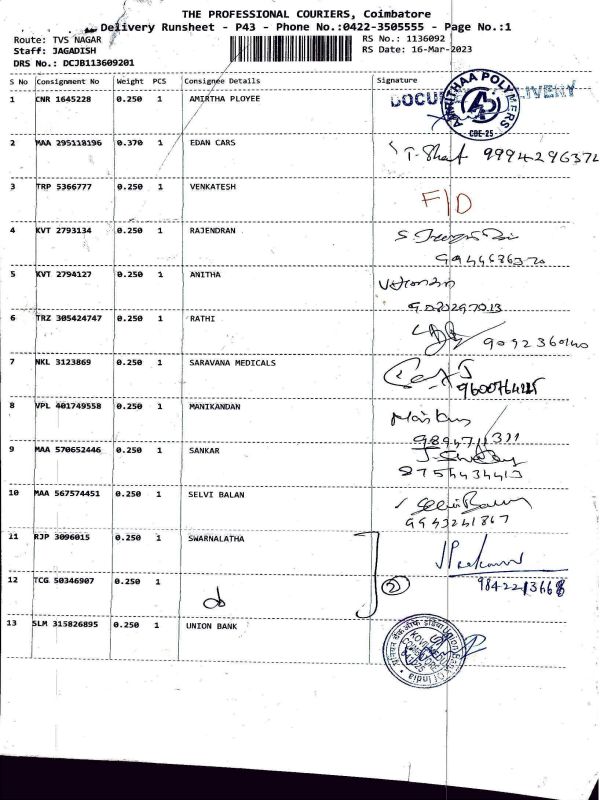 THE PROFESSIONAL COURIERS, Coimbatore
Delivery Runsheet - P43 - Phone No.:0422-3505555 - Page No.:1
Route: TVS NAGAR RS No.: 1136092
Staff: JAGADISH RS Date: 16-Mar-2023
DRS No.: DCJB113609201
S No Consignment No Weight PCS Consignee Details Signature
1 CNR 1645228 0.250 1 AMIRTHA PLOYEE
CBE-25
2 MAA 295118196 0.370 1 EDAN CARS
3 TRP 5366777 0.250 1 VENKATESH F/D
4 KVT 2793134 0.250 1 RAJENDRAN
5 KVT 2794127 0.250 1 ANITHA
6 TRZ 305424747 0.250 1 RATHI 9092360140
7 NKL 3123869 0.250 1 SARAVANA MEDICALS
8 VPL 401749558 0.250 1 MANIKANDAN
9 MAA 570652446 0.250 1 SANKAR
8754434413
10 MAA 567574451 0.250 1 SELVI BALAN
9943241867
11 RJP 3096015 0.250 1 SWARNALATHA
12 TCG 50346907 0.250 1 do 2 9842213668
13 SLM 315826895 0.250 1 UNION BANK